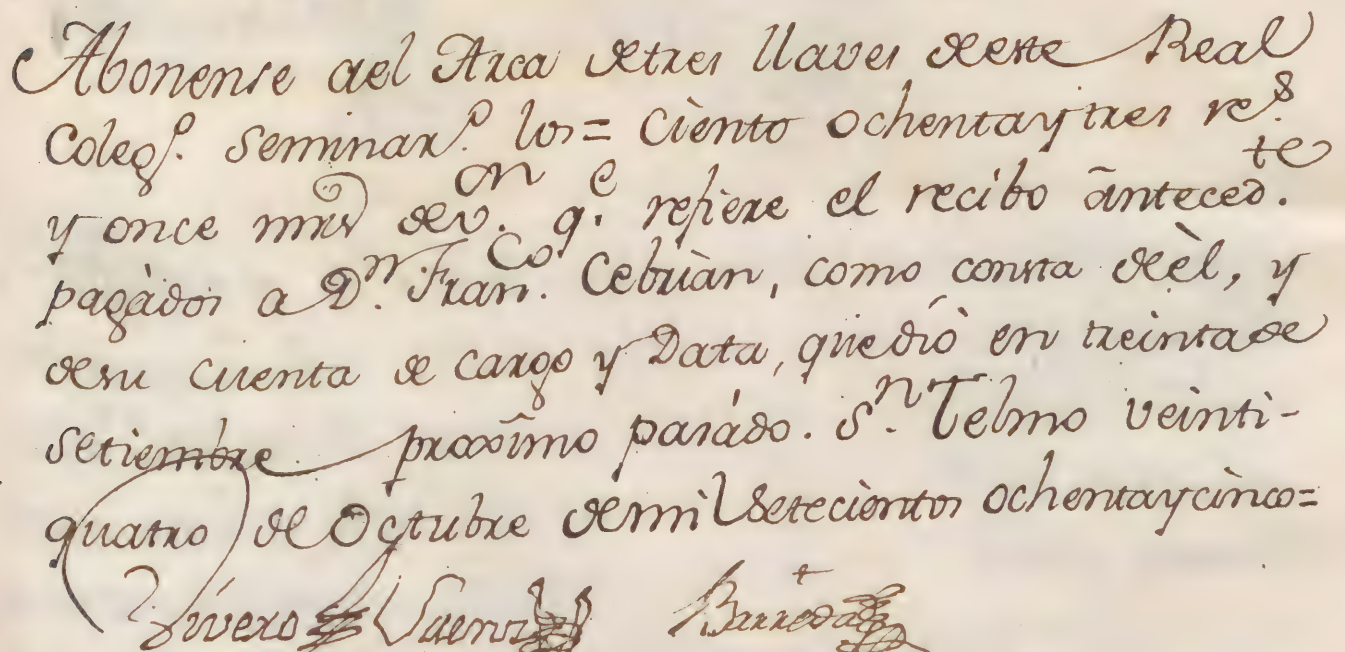 Abonense ael Arca detres llaves deeste Real
Coleg.º Seminar.º los = Ciento ochentaytres re.s
y once mrs dev.on q.e refiere el recibo anteced.te
pagàdos a D.n Fran.co Cebriàn, como consta deèl, y
desu cuenta de cargo y Data, quedió en treintade
Setiembre proximo pasádo. S.n Telmo veinti-
quatro de Octubre demil setecientos ochentaycinco=
Vivero Barreda